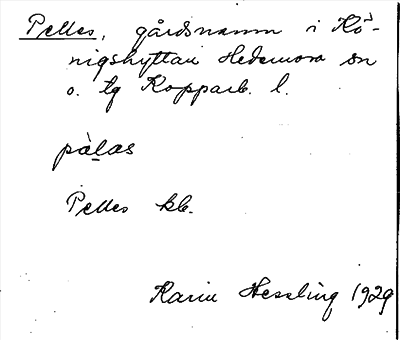 Pelles, gårdsnamn i Kö-
nigshyttan Hedemora sn
o. tg Kopparb. l.
pälas
Pelles kb.
Karin Hessling 1929